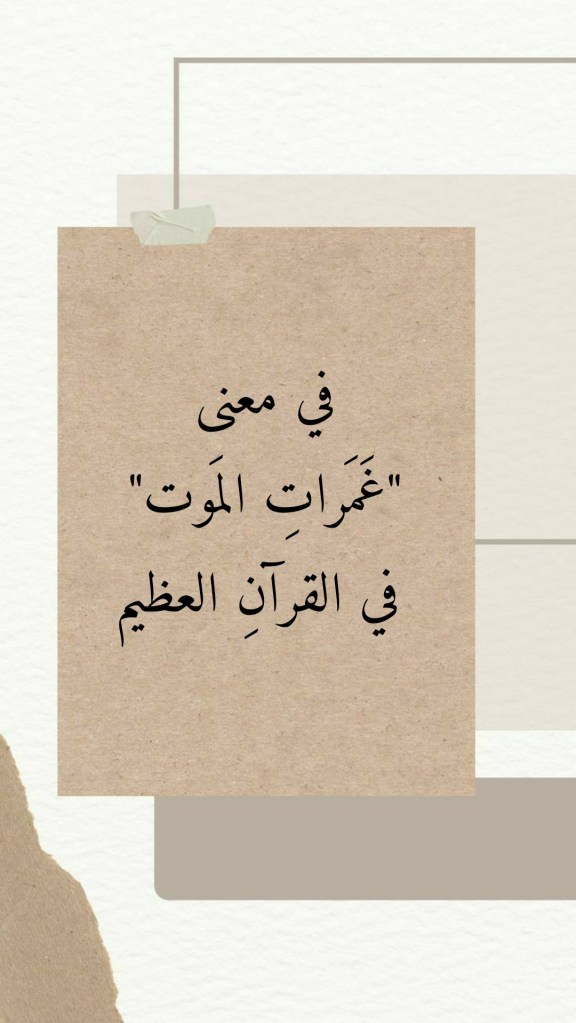 في معنى
"غَمَراتِ المَوت"
في القرآنِ العظيم